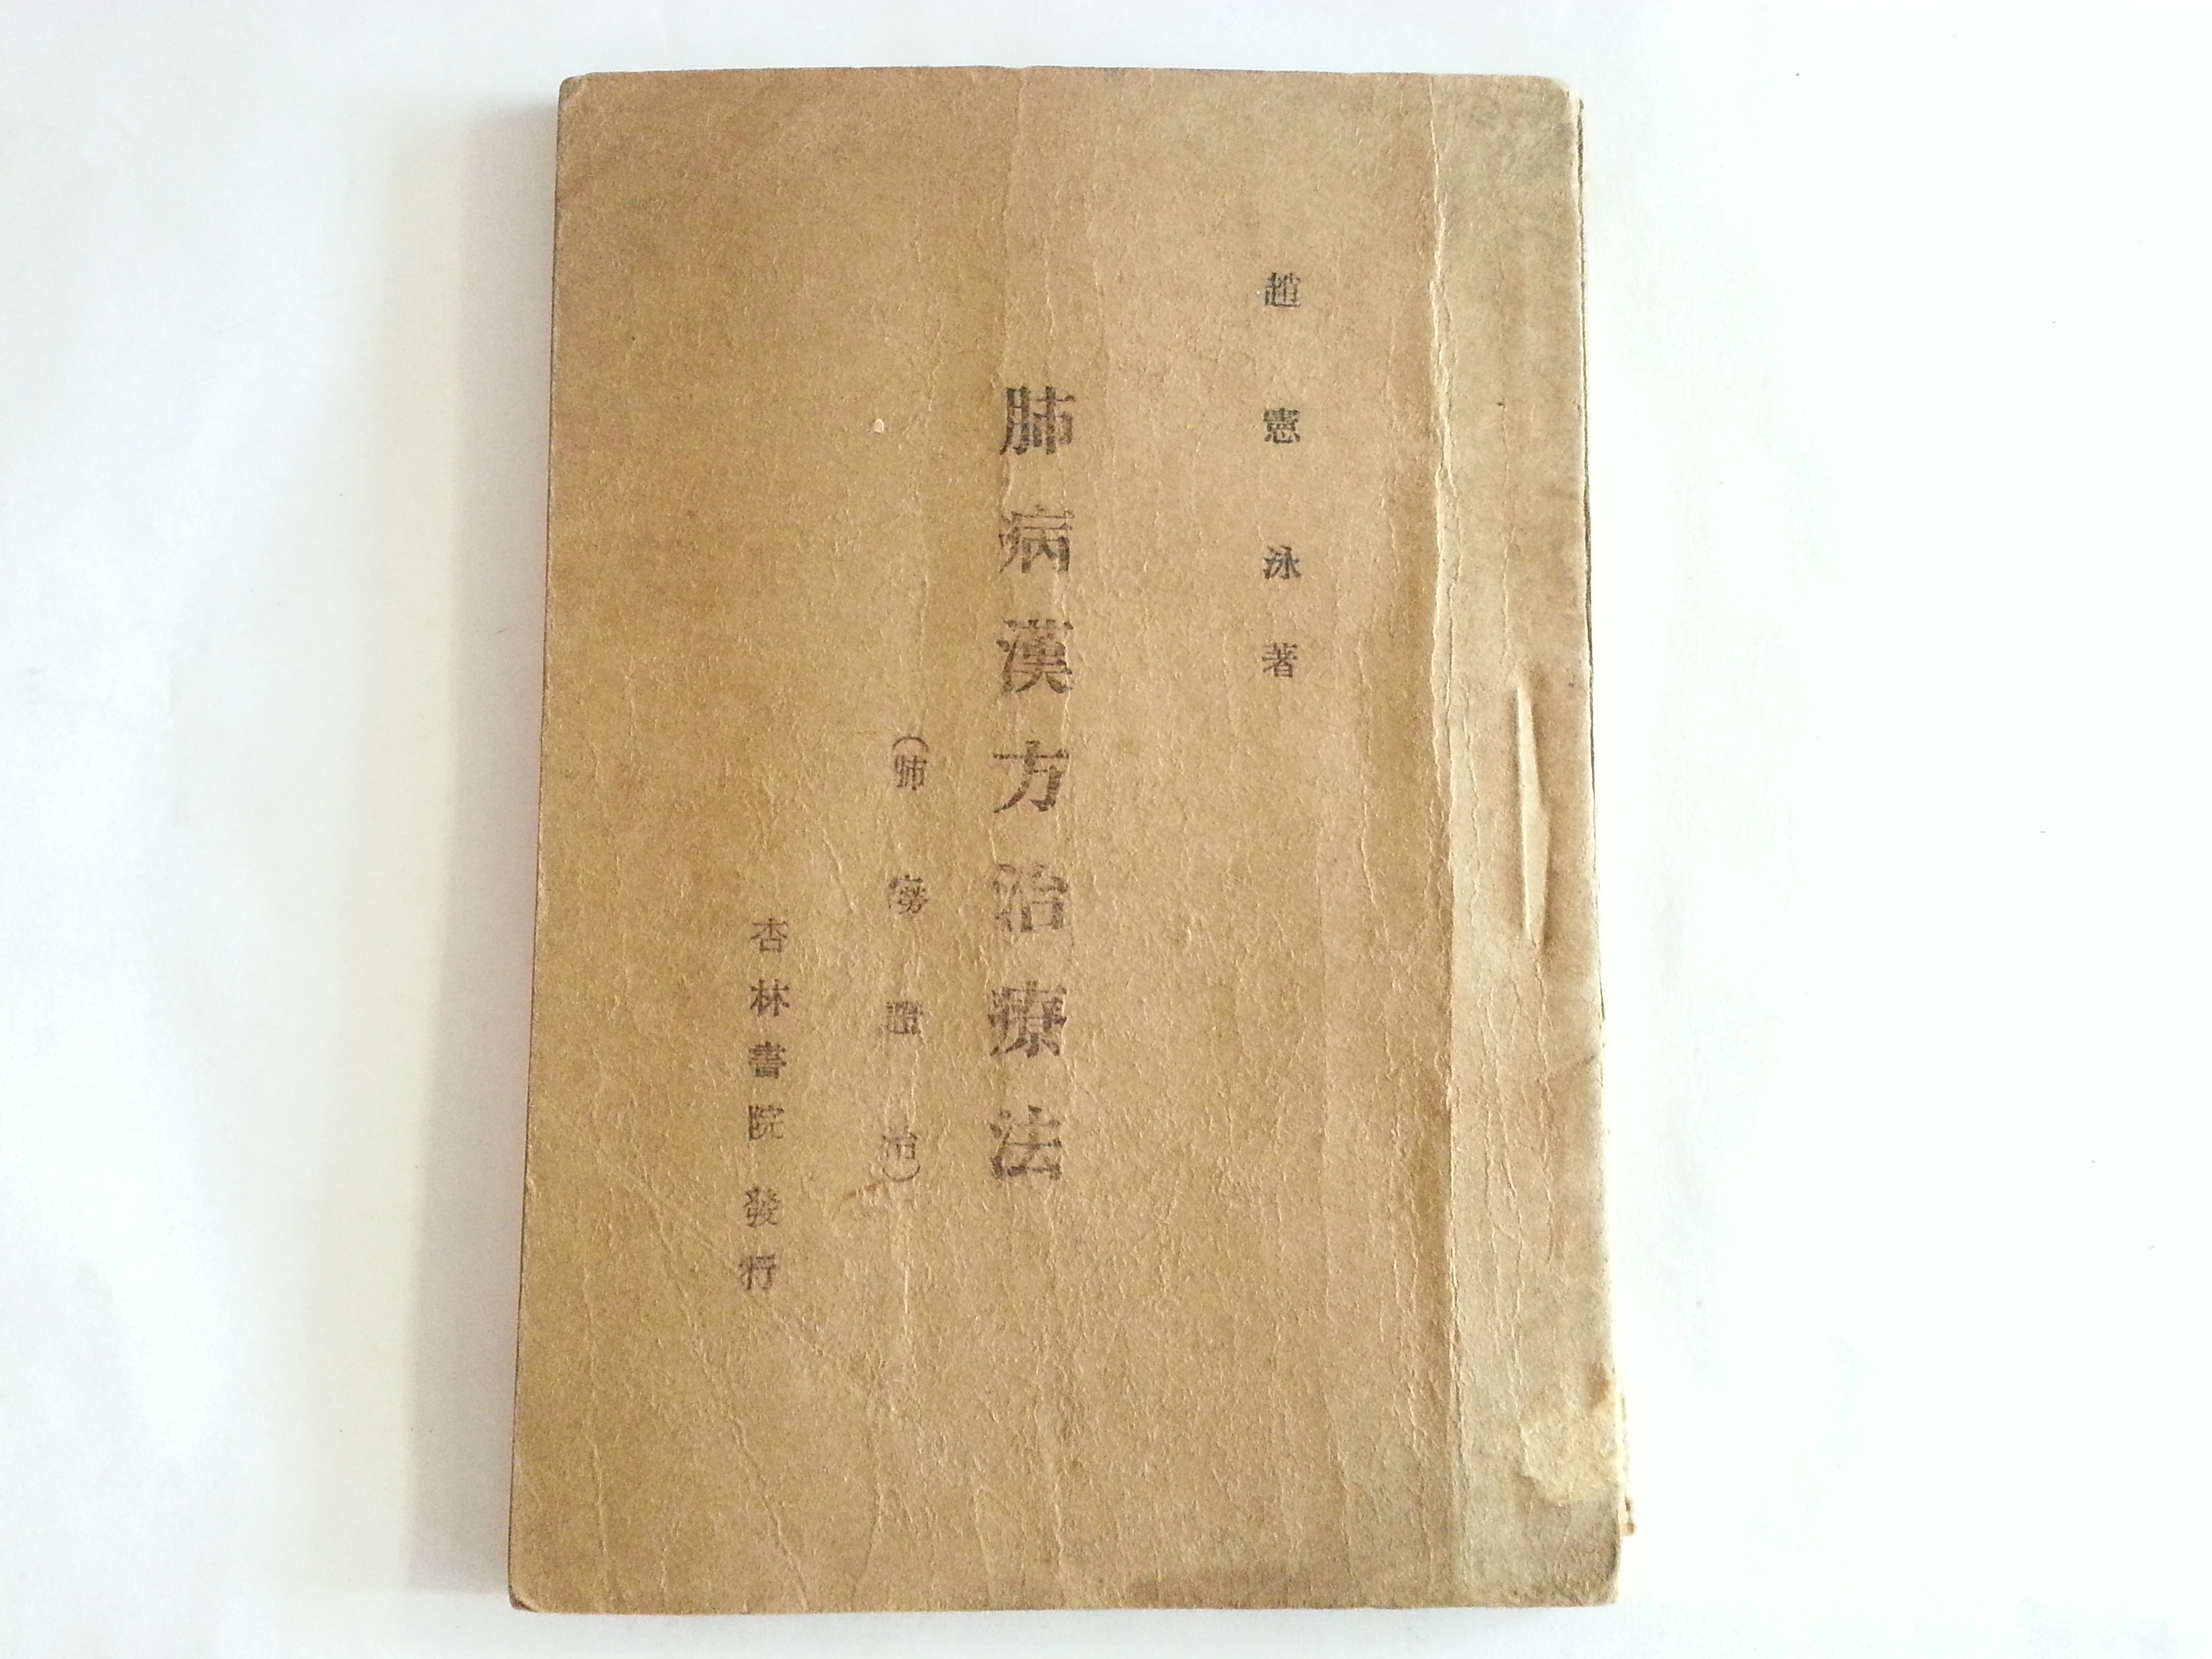 趙憲泳著
肺病漢方治療法
(肺癆證治)
杏林書院發行